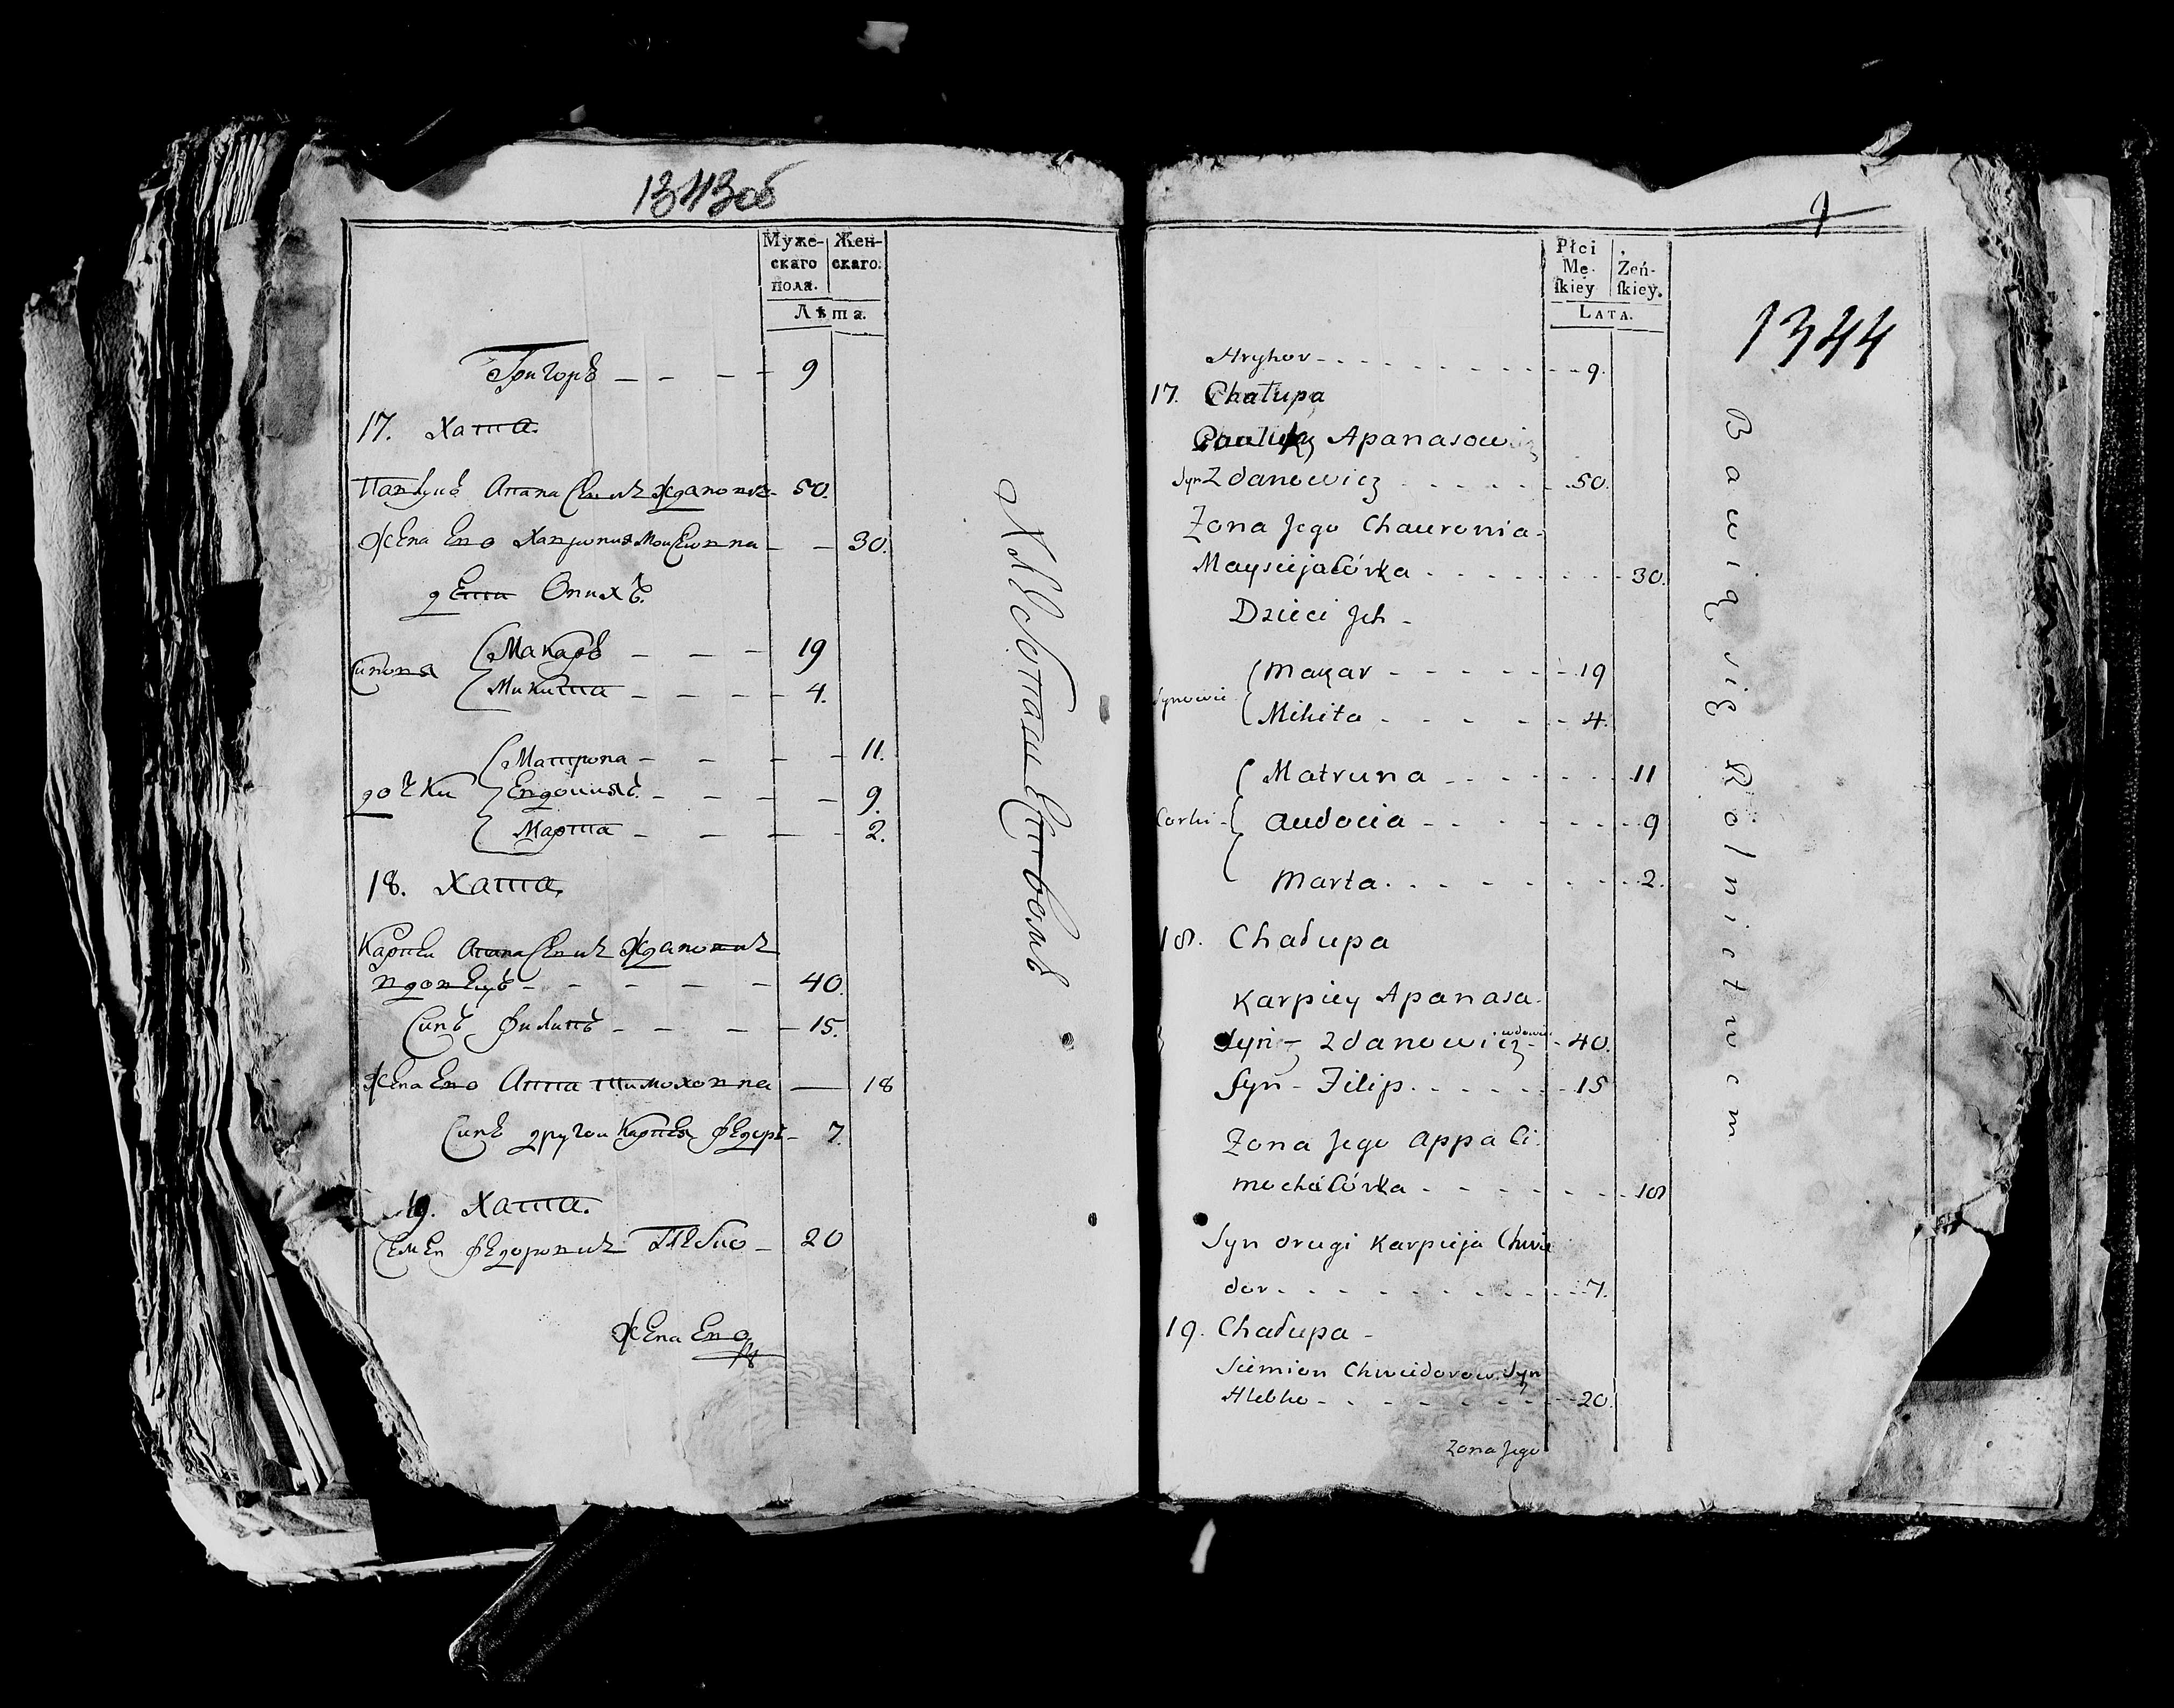 1343об
Муже-
скаго
пола.
Жен-
скаго.
Лѣта.
Григоръ — — — 9
17. Хата.
Павлукъ Апанасевичъ Ждановичъ - 50.
Жена Его Хавронія Мойсеювна — — 30.
дети Онихъ.
Синовя
Макаръ — — — 19
Микита — — — 4.
дочки
Матрона — — — 11.
Евдокия — — — 9.
Марта — — — 2.
18. Хата.
Карпей Апанасевичъ Ждановичъ
вдовецъ - — — — 40.
Синъ Филипъ — — — 15.
Жена Его Тимоховна — 18
Синъ другой Карпея Федоръ - 7.
19. Хата.
Семен Федоровичъ Глебко — 20
Жена Его
Хлебопашествомъ
1344
Płci
Mę-
skiey
Żeń-
skiey.
LATA.
Hryhor - - - 9.
17. Chałupa
Apanasowicz
Syn Zdanowicz - - - 50.
Żona Jego Chauronia
Maysiejacórka - - - 30.
Dzieci Jch -
Synowie
Makar - - - 19
Mikita - - - 4.
Corki -
Matruna - - - 11
Audocia - - - 9
Marta - - - 2.
18. Chałupa
Karpiey Apanasa
Syn - Zdanowicz wdowiec - 40.
Syn - Filip - - - 15
Żona Jego Appa Ci
mochacórka - - - 18
Syn drugi Karpieja Chwie
dor - - - 7.
19. Chałupa -
Siemion Chwiedorow Syn
Hlebko - - - 20.
Żona Jego
Bawią się Rolnictwem